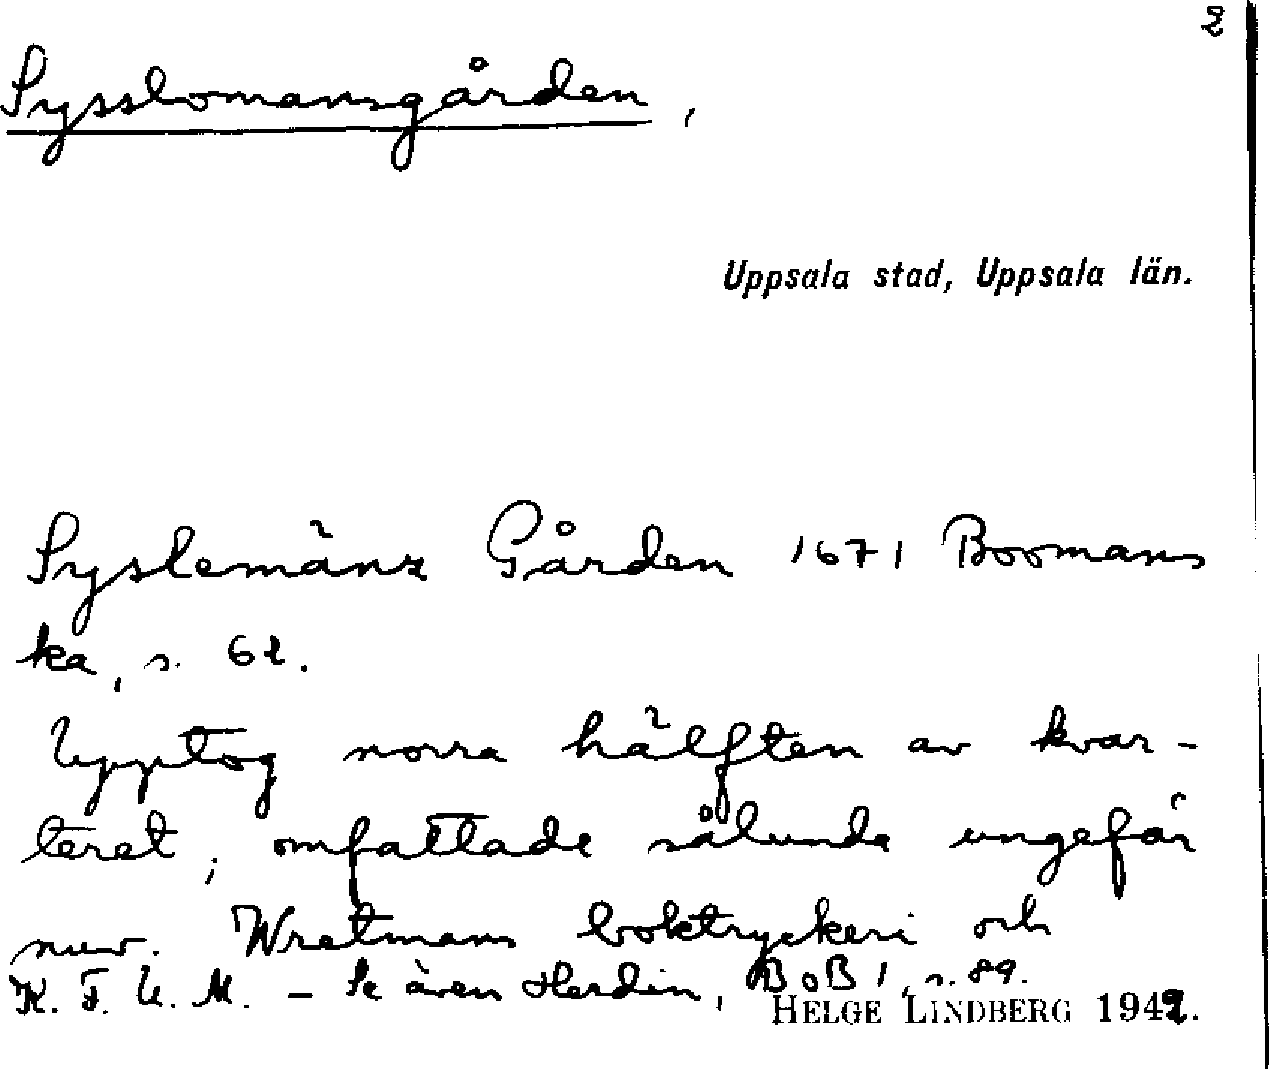 2
Sysslomansgården,
Uppsala stad, Uppsala län.
Syslemänz Gården 1671 Boomans
ka, s. 62.
Upptog norra hälften av kvar-
teret, omfattade sålunda ungefär
nuv. Wretmans boktryckeri och
K.F.U.M. – Se även Herdin, BoB 1, s. 89.
HELGE LINDBERG 1942.